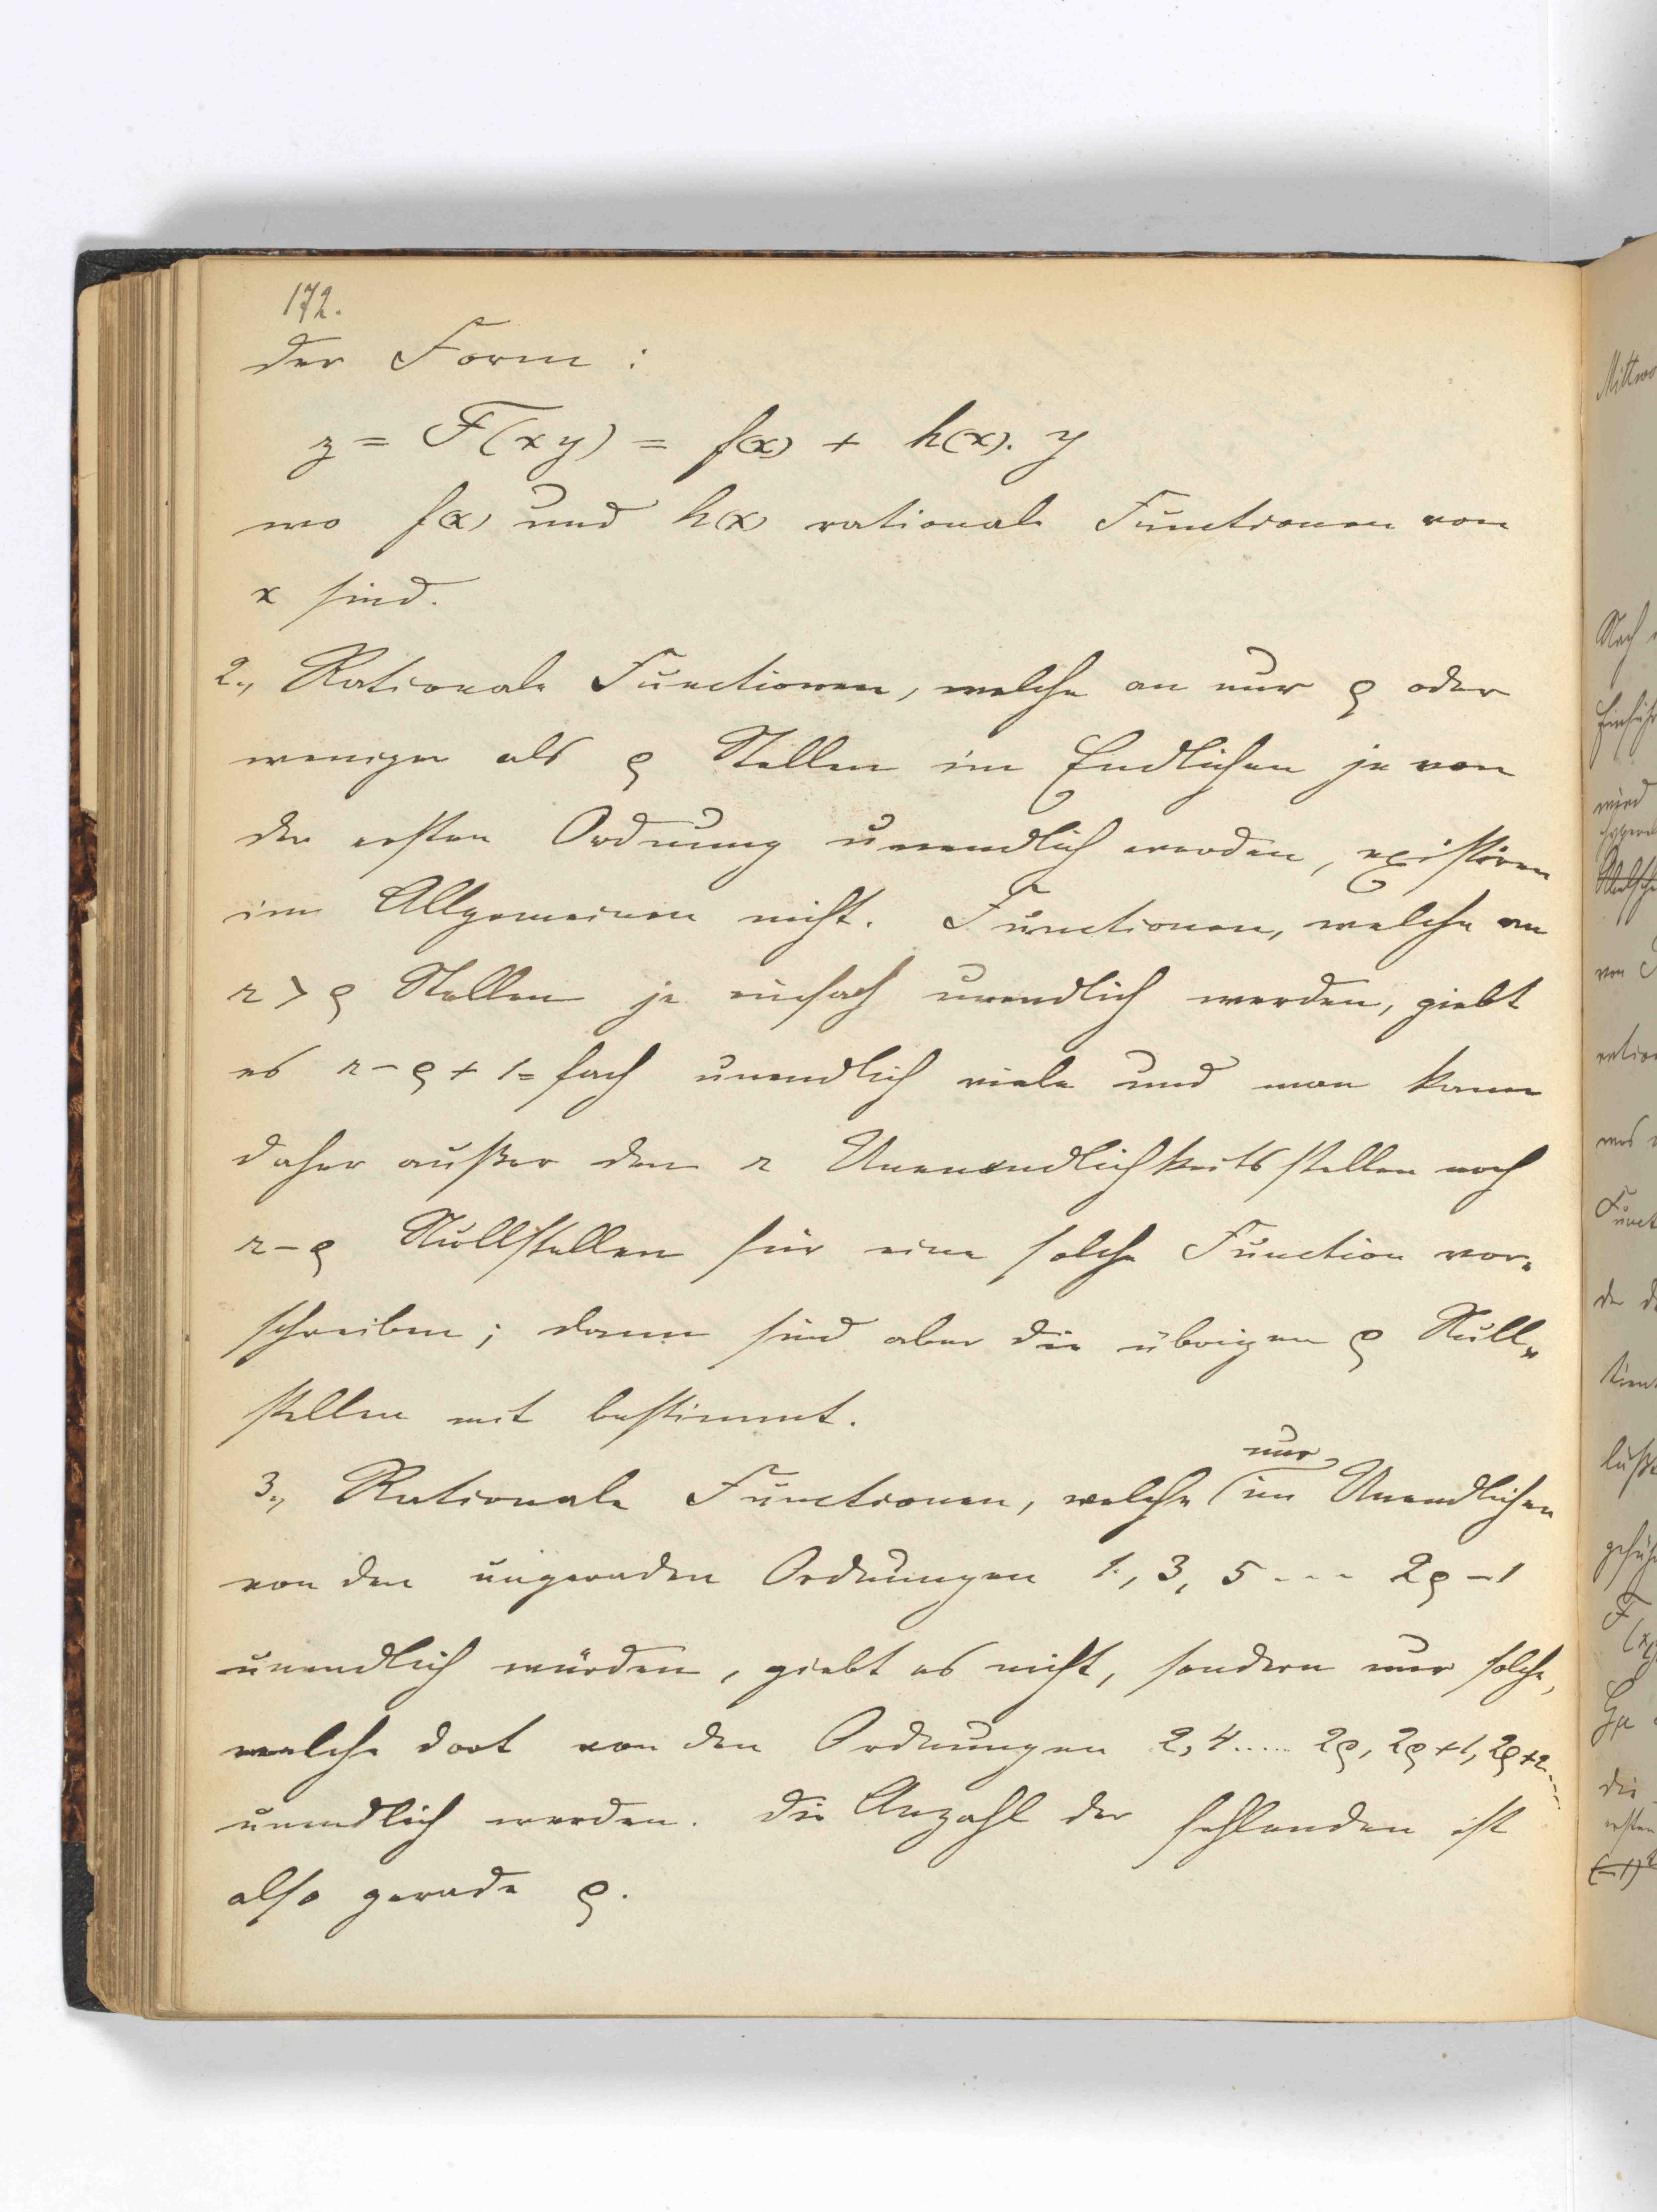 172.
der Form :
z = F(xy) = f(x) + h(x). y
wo f(x) und h(x) rationale Functionen von
x sind.
2., Rationale Functionen, welche an nur ϱ oder
weniger als ϱ Stellen im Endlichen je von
der ersten Ordnung unendlich werden, existiren
im Allgemeinen nicht. Functionen, welche an
r > ϱ Stellen je einfach unendlich werden, giebt
es r - ϱ + 1 = fach unendlich viele und man kann
daher außer den r Unenendlichkeitsstellen noch
r - ϱ Nullstellen für eine solche Function vor=
schreiben; dann sind aber die übrigen ϱ Null=
stellen mit bestimmt.
3., Rationale Functionen, welche nur im Unendlichen
von den ungeraden Ordnungen 1, 3, 5 - - - 2ϱ - 1
unendlich würden, giebt es nicht, sondern nur solche,
welche dort von den Ordnungen 2, 4 ..... 2ϱ, 2ϱ + 1, 2ϱ + 2 ....
unendlich werden. Die Anzahl der fehlenden ist
also gerade ϱ.